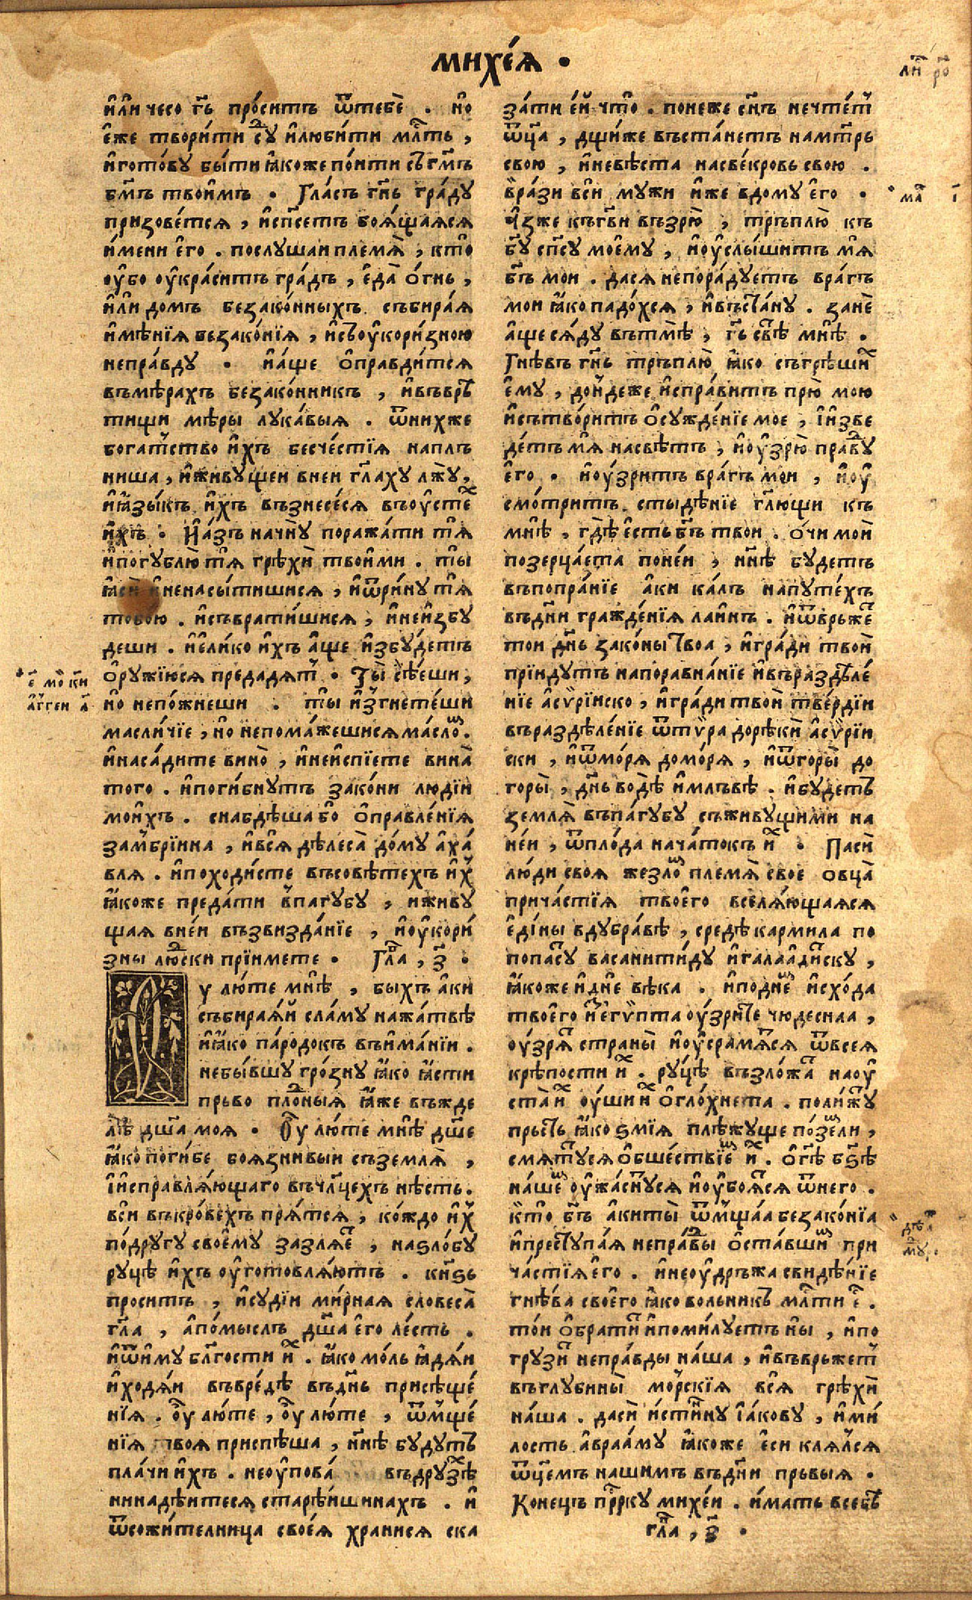 михе́я .
или чесо гь҃ про́ситъ ѿтебѐ . но
е́же твори́ти сꙋ҃ и҆люби́ти мл҃ть ,
и҆гото́вꙋ бы́ти ꙗ҆коже по́ити съгм҃ъ
бм҃ъ твои́мъ . Гла́съ гн҃ь гра́дꙋ
призове́тся , и҆сп҃сетъ боя́щаяся
и́мени е҆го . послꙋшаи племѧ̀ , кто̀
ꙋ҆бо ꙋ҆кра́ситъ гра́дъ , е҆да̀ ѻ҆́гнь ,
и҆́ли домъ беззако́нныхъ събира́я
и҆мѣ́нїя беззако́нїя , и҆съꙋкори́зною
непра́вдꙋ . и҆а́ще ѻ҆правди́тся
въмѣ́рахъ беззако́нникъ , и҆въвръ
тищи мѣ́ры лꙋка́выя . ѿнихже
бога́тство и҆́хъ бесче́стїя наплъ
ниша , и҆живꙋщеи внеи гл҃ахꙋ лжꙋ ,
и҆ꙗ҆зы́къ и҆́хъ възнесе́ся въꙋсте́хъ
и҆́хъ . И҆а́зъ начнꙋ̀ поража́ти тя̀
и҆погꙋблю̀ тя грѣхѝ твои́ми . ты̀
ꙗ҆сѝ и҆ненасы́тишися , и҆ѿри́нꙋ тя
тобою . и҆съврати́шися , и҆неи҆збꙋ
деши . и҆е҆ли́ко и҆́хъ а҆́ще и҆збꙋ́детъ
ѻ҆рꙋ́жїюся предадя́т . Ты̀ сѣ́еши ,
но непо́жнеши . ты̀ и҆згнете́ши
масли́чїе , но непома́жешися ма́сло .
и҆наса́дите вино̀ , и҆неи҆спїе́те вина̀
того . и҆поги́бнꙋтъ зако́ни люді́и
мои́хъ . снабдѣ́ша бо ѻ҆правле́нїя
замврі́ина , и҆вся̀ дѣлеса̀ до́мꙋ а҆ха́
вля . и҆походи́сте въсовѣ́техъ и҆́х
ꙗ҆коже преда́ти в҆пагꙋ́бꙋ , и҆живꙋ
щая вне́и възвизда́нїе , и҆ꙋкори
зны лю́ски прїимете . Гл҃а , з҃ .
Ѹ лю́те мнѣ̀ , быхъ а҆ки
събира́яй сла́мꙋ нажа́твѣ
и҆ꙗ҆ко па́родокъ въи҆ма́нїи .
небы́вшꙋ гро́знꙋ ꙗ҆ко ꙗ҆сти
прьво пло́дныя ꙗ҆же въжде
лѣ̀ дш҃а моя . Оу лю́те мнѣ̀ дш҃е
ꙗ҆ко поги́бе боязнивыи съземля̀ ,
і҆и҆справля́ющаго въчл҃цехъ нѣ́сть .
вси̇ въкро́вехъ пря́тся , ко́ждо и҆́х
по́дрꙋгꙋ своемꙋ зазля́е , наѕло́бꙋ
рꙋцѣ и҆́хъ ꙋ҆готовля́ютъ . кн҃ѕь
проситъ , и҆сꙋдїи ми́рная словеса̀
гл҃а , а҆по́мыслъ дш҃а е҆го ле́сть .
и҆ѿи҆мꙋ бл҃гости и҆х . ꙗ҆ко мо́ль ꙗ҆дя́и
и҆ходя́и въвре́дѣ въдн҃ь присѣще́
нїя . оу лю́те , оу лю́те , ѿмще́
нїя твоя приспѣ́ша , нн҃ѣ бꙋ́дꙋтъ
пла́чи и҆́хъ . неꙋпова́ въдрꙋзѣ́х
ни надѣ́итеся старѣ́ишинахъ . и҆
ѿсожи́телница своея́ храни́ся ска
за́ти е҆́й что̀ . понеже сн҃ъ нечте́т
ѿц҃а , дщи́же въста́нетъ нама́терь
свою , и҆невѣ́ста насве́кровь свою .
врази вси мꙋжи и҆же вдомꙋ е҆го .
А҆зже къгв҃и възрю̀ , тръплю̀ къ
бг҃ꙋ сп҃сꙋ мое́мꙋ , и҆ꙋслы́шитъ мя
бг҃ъ мои . дася непора́дꙋетъ врагъ
мои ꙗ҆ко падо́хся , и҆въста́нꙋ . занѐ
а҆ще ся́дꙋ вътмѣ̀ , гь҃ свѣ́т мнѣ̀ .
Гнѣвъ гн҃ь тръплю̀ ꙗ҆ко съгрѣши́х
е҆мꙋ , до́ндеже и҆спра́витъ прю̀ мою
и҆сътво́ритъ ѻ҆сꙋжде́нїе мое , і҆и҆зве
де́тъ мя насвѣ́тъ , и҆ꙋзрю̀ пра́вдꙋ
е҆го . и҆ꙋзритъ врагъ мои , и҆ꙋ
смо́тритъ стыдѣ́нїе гл҃ющи къ
мнѣ , гдѣ̀ е҆сть бг҃ъ твои . о҆чи мои̇
позерца́ета поне́и , нн҃ѣ бꙋдетъ
въпопра́нїе а҆ки калъ напꙋте́хъ
въдн҃и гражде́нїя лаинъ . и҆ѿвръже
тои дн҃ь зако́ны твоа , и҆гра́ди твои̇
прїидꙋтъ напоравна́нїе и҆въраздѣле́
нїе а҆си́рїиско , и҆гра́ди твои тве́рдїи
въраздѣле́нїе ѿтѵ́ра дорѣ́ки а҆сѵ́рїи
ски , и҆ѿмо́ря домо́ря , и҆ѿгоры̀ до
горы̀ , дн҃ь водѣ̀ и҆млъвѣ̀ . и҆бꙋ́детъ
земля̀ въпагꙋ́бꙋ съживꙋ́щими на
не́и , ѿпло́да нача́токъ и҆х . Пасѝ
лю́ди своя жезло племѧ̀ свое ѻвца̀
прича́стїя твоего вселя́ющаяся
е҆ди́ны вдꙋбра́вѣ , средѣ̀ кармила по
попа́сꙋ васани́тидꙋ и҆галаа́дскꙋ ,
ꙗ҆коже и҆дн҃е вѣка . и҆подн҃ѐ и҆схо́да
твоего и҆зеги́пта ꙋ҆зрите чюдеснаа ,
ꙋ҆зря́т страны̀ и҆ꙋсрамя́тся ѿвсея
крѣпости и҆х . рꙋцѣ възло́жат наꙋ
ста и҆х ꙋ҆ши и҆х ѻ҆гло́хнета . поли́жꙋ
прьсть ꙗ҆ко ѕмїя плѣ́жꙋще по́земли ,
смятꙋ́тся ѻ҆бще́ствїем и҆х . ѻ҆гѣ̀ бз҃ѣ
на́шем ꙋ҆жа́снꙋся и҆ꙋбоя́тся ѿнего .
кто̀ бг҃ъ а҆киты̀ ѿмща́а беззако́нїа
и҆престꙋпа́я непра́вды ѻ҆ста́вшим при
ча́стїя е҆го . и҆неꙋдръжа свидѣ́нїе
гнѣ́ва своего ꙗ҆ко волникъ мл҃ти е҆с .
то́и ѻ҆брати́т и҆поми́лꙋетъ ны̀ , и҆по
грꙋзи́т непра́вды на́ша , и҆въвръжет
въглꙋбины̀ морскїя вся̀ грѣхѝ
на́ша . дасѝ и҆стинꙋ і҆а́ковꙋ , и҆ми
лость а҆враа́мꙋ ꙗ҆коже е҆си кля́лся
ѿц҃емъ нашимъ въдн҃и прьвыя .
Конецъ пр҃ркꙋ михе́и . и҆мать всебѣ
гл҃а , з҃ .